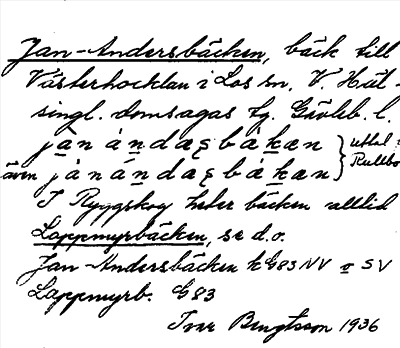 Jan-Andersbäcken, bäck till
Västerhocklan i Los sn, V. Häl-
singl. domsagas tg. Gävleb. l.
jàn ánḍaʂbä̀kæn } uttal i
även jànánḍaʂbä̀kan Rullbo
I Ryggskog heter bäcken alltid
Lappmyrbäcken, se d.o.
Jan-Andersbäcken k G83 NV o SV
Lappmyrb. G83
Ivar Bengtsson 1936